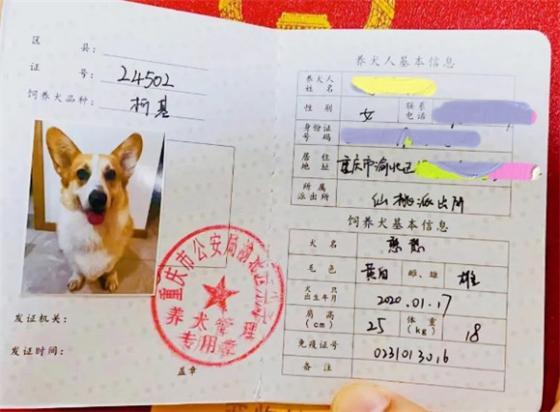 区 县:
证 号: 24502
饲养犬品种: 柯基
重庆市公安局渝北区
养犬管理
专用章
发证机关:
发证时间:
盖章
养犬人基本信息
养犬人
姓名
性别 女 联系
电话
身份证
号码
居住
地址 重庆市渝北区
所属
派出所 仙桃派出所
饲养犬基本信息
犬名 憨憨
毛色 黄白 雌、雄 雄
犬只
出生年月 2020.01.17
肩高
(cm) 25 体重
(kg) 18
免疫证号 0231013016
备注